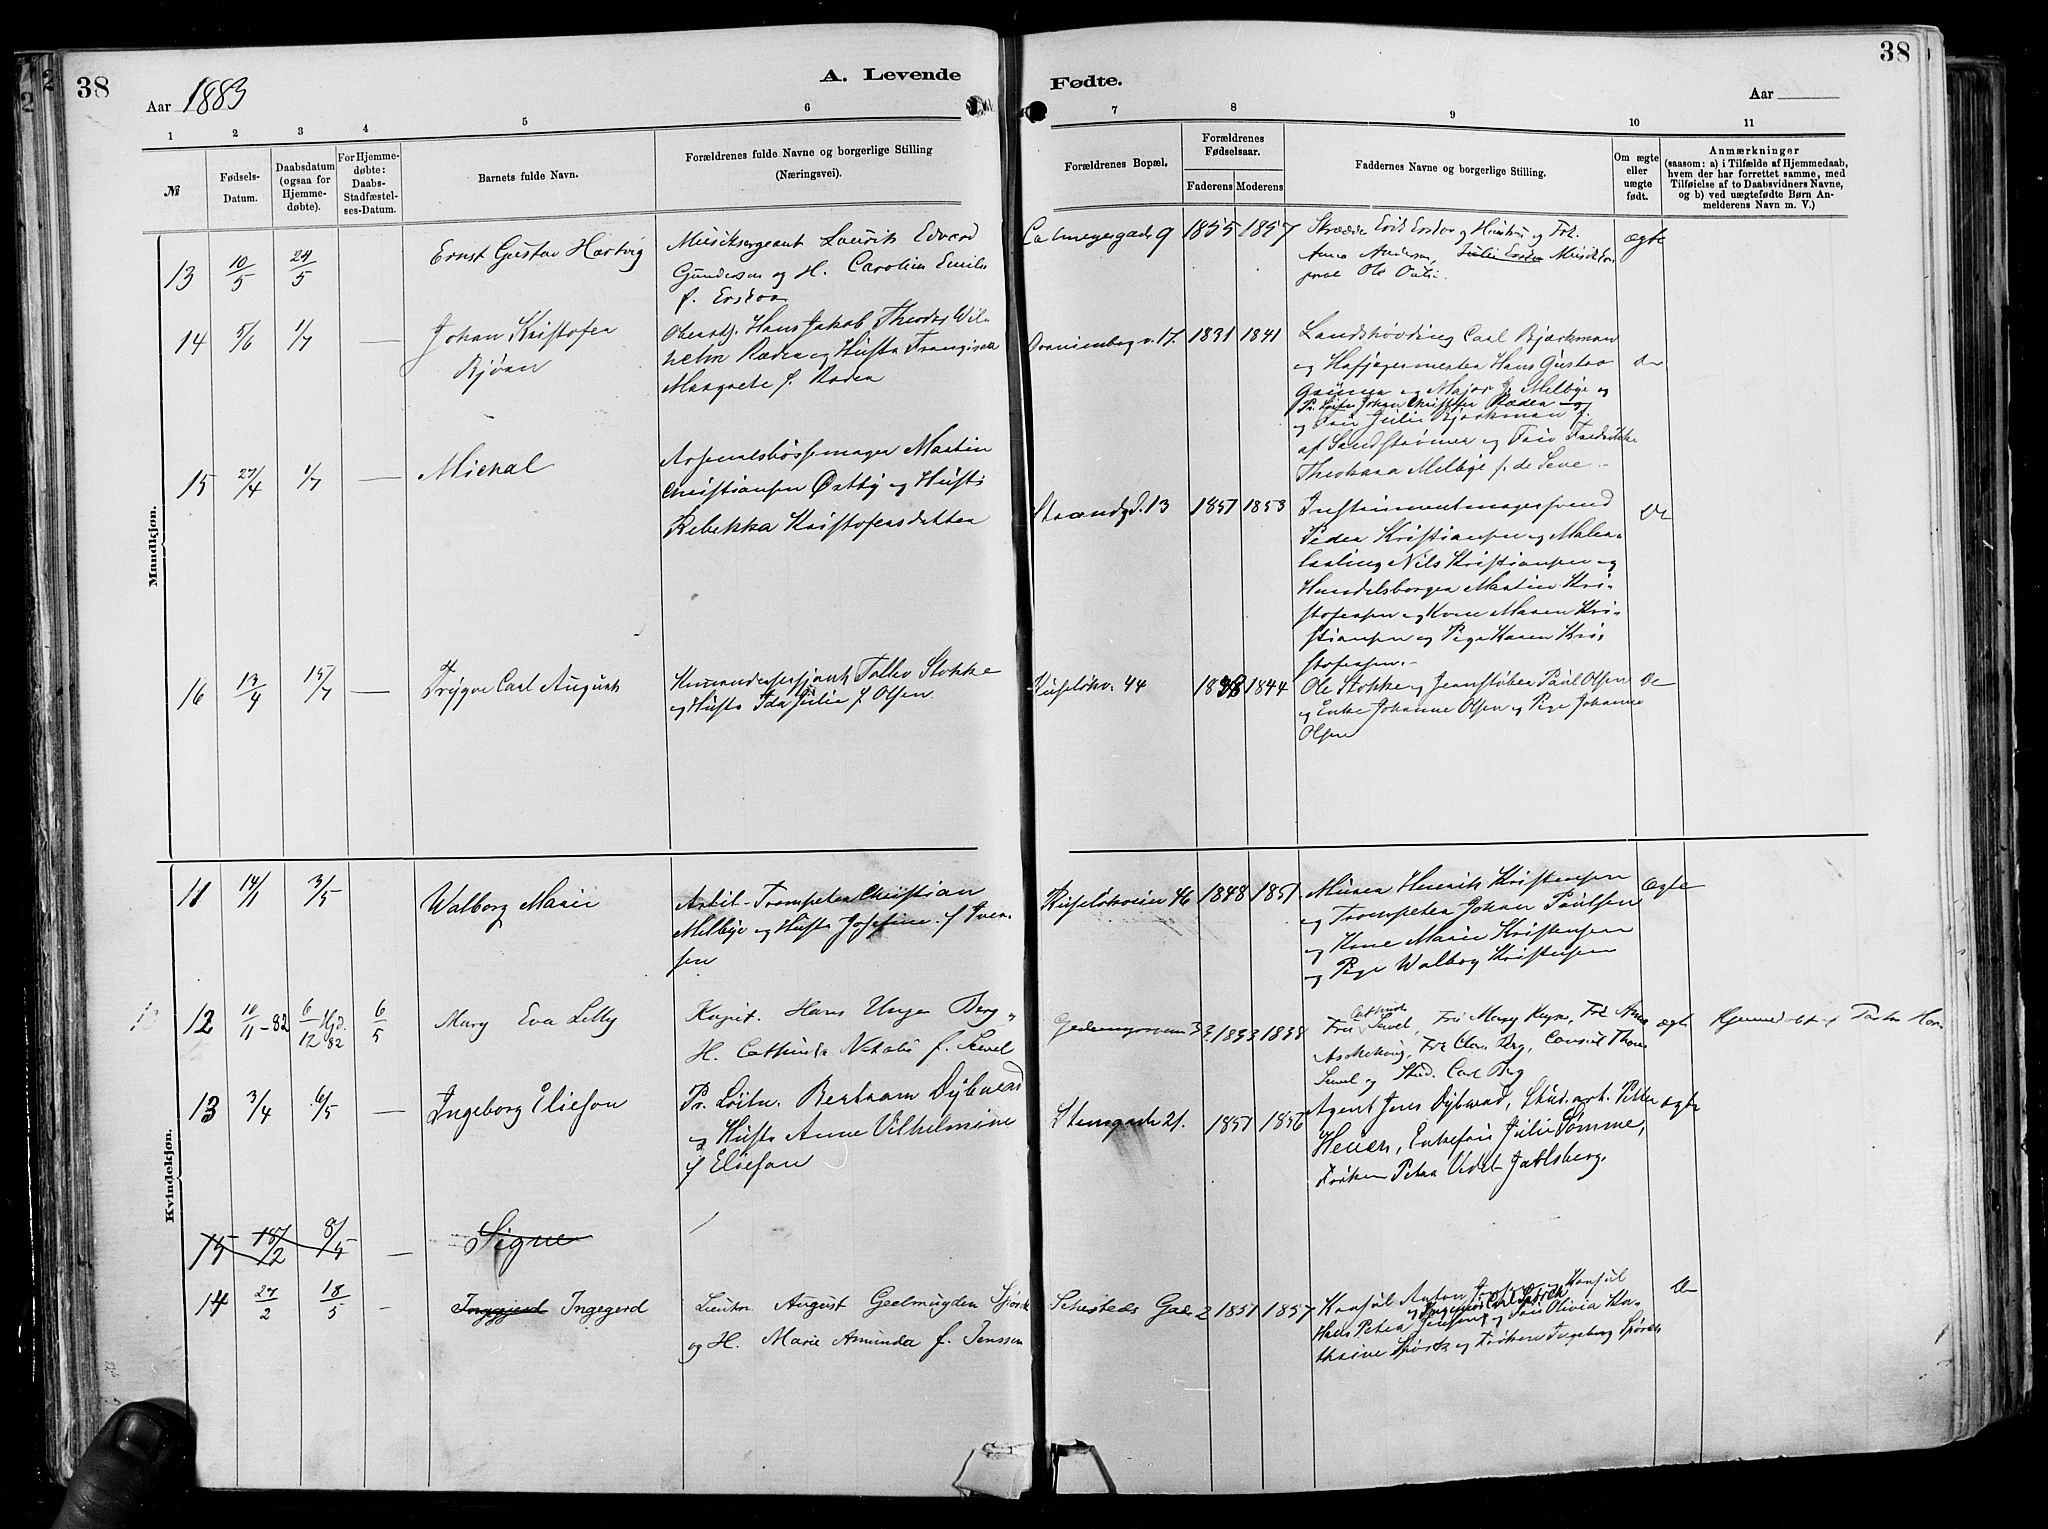 38
Aar 1883
A. Levende
Fødte.
Aar
38
1 2 3 4 5 6 7 8 9 10 11
№
Fødsels-Datum.
Daabsdatum (ogsaa for Hjemme-døbte).
For Hjemme-døbte: Daabs-Stadfæstel-ses-Datum.
Barnets fulde Navn.
Forældrenes fulde Navne og borgerlige Stilling (Næringsvei).
Forældrenes Bopæl.
Forældrenes Fødselsaar.
Faderens Moderens
Faddernes Navne og borgerlige Stilling.
Om ægte eller uægte født.
Anmærkninger
(saasom: a) i Tilfælde af Hjemmedaab,
hvem der har forrettet samme, med
Tilføielse af to Daabsvidners Navne,
og b) ved uægtefødte Børn An-
melderens Navn m. V.)
Mandkjøn.
13 10/5 24/5 Ernst Gustav Hartvig
Musiksergeant Laurits Edvard
Gundersen og H. Caroline Emilie
f. Erstøen
Calmeyergade 9 1855 1857
Anna Andersen, Julie
Ole
ægte
14 5/6 1/7 — Johan Kristofer
Bjørn
Oberstlj. Hans Jakob Theodor Wil-
helm Ræder og Hustr Frangiska
Margrete f. Ræder
Oranienborg v. 17. 1831 1841
Landshøvding Carl Bjørkman
og Hofjægermester Hans Gustav
Grüner og Major J. Melbye og
Pr. Løitn. Johan Christopher Ræder og
og Frue Julie Bjørkman f.
af Sandstrømer og Frue Fredrikke
Theokara Melbye f. de Seve
Do
15 27/4 1/7 — Michal
Arsenalsbøssemager Martin
Christiansen Østby og Hustr
Rebekka Kristofersdatter
Strandgd. 13 1851 1853
Instrumentmagersvend
Peder Kristiansen og Maler-
lærling Nils Kristiansen og
Handelsborger Martin Kri-
stofersen og Kone Maren Kri-
stiansen og Pige Karen Kri-
stofersen.
Do
16 13/4 15/7 — Trygve Carl August
Kommandersersjant Tallev Stokke
og Hustr Ida Julie f. Olsen
Ruseløkv. 44 1838 1844
Ole Stokke og Jernstøber Paul Olsen
og Enke Johanne Olsen og Pige Johanne
Olsen
Do
Kvindekjøn.
11 14/1 3/5 Walborg Marie
Artil-Trompeter Christian
Melbye og Hustr Josefine f. Iver-
sen
Ruseløkveien 46 1848 1851
Murer Henrik Kristensen
og Trompeter Johan Paulsen
og Kone Marie Kristensen
og Pige Walborg Kristensen
Ægte
12 10/11-82 6/12 Hjd. 82 6/5 Mary Eva Lilly
Kapit. Hans Unger Berg,
H. Cathinda Natalie f. Sewel
1833 1838
Fru Cathinda Sewel, Frk Mary Keyn, Frk Anna
Aschehoug, Frk Clara Berg, Consul Thom
Sewel og Stud. Carl Berg
ægte
Hjemmedøbt af
13 3/4 6/5 — Ingeborg Elieson
Pr. Løitn. Bertram Dybwad
og Hustr Anne Vilhelmine
f. Elieson
Stensgade 21. 1851 1856
Agent Jens Dybwad, Stud. art. Petter
Heuch, Enkefru Julie Somme,
Frøken Petra Vedel Jarlsberg.
ægte
15 18/2 8/5 — Signe
14 27/2 18/5 — Ingegerd
Lieutn. August Geelmuyden Spørck
og H. Marie Amunda f. Jenssen
Sehesteds Gade 2 1851 1857
Konsul Anton Jenssen, Konsul
Hans Peter Jenssen og Frue Olivia Ka-
thrine Spørck og Frøken Ingeborg Spørck
Do